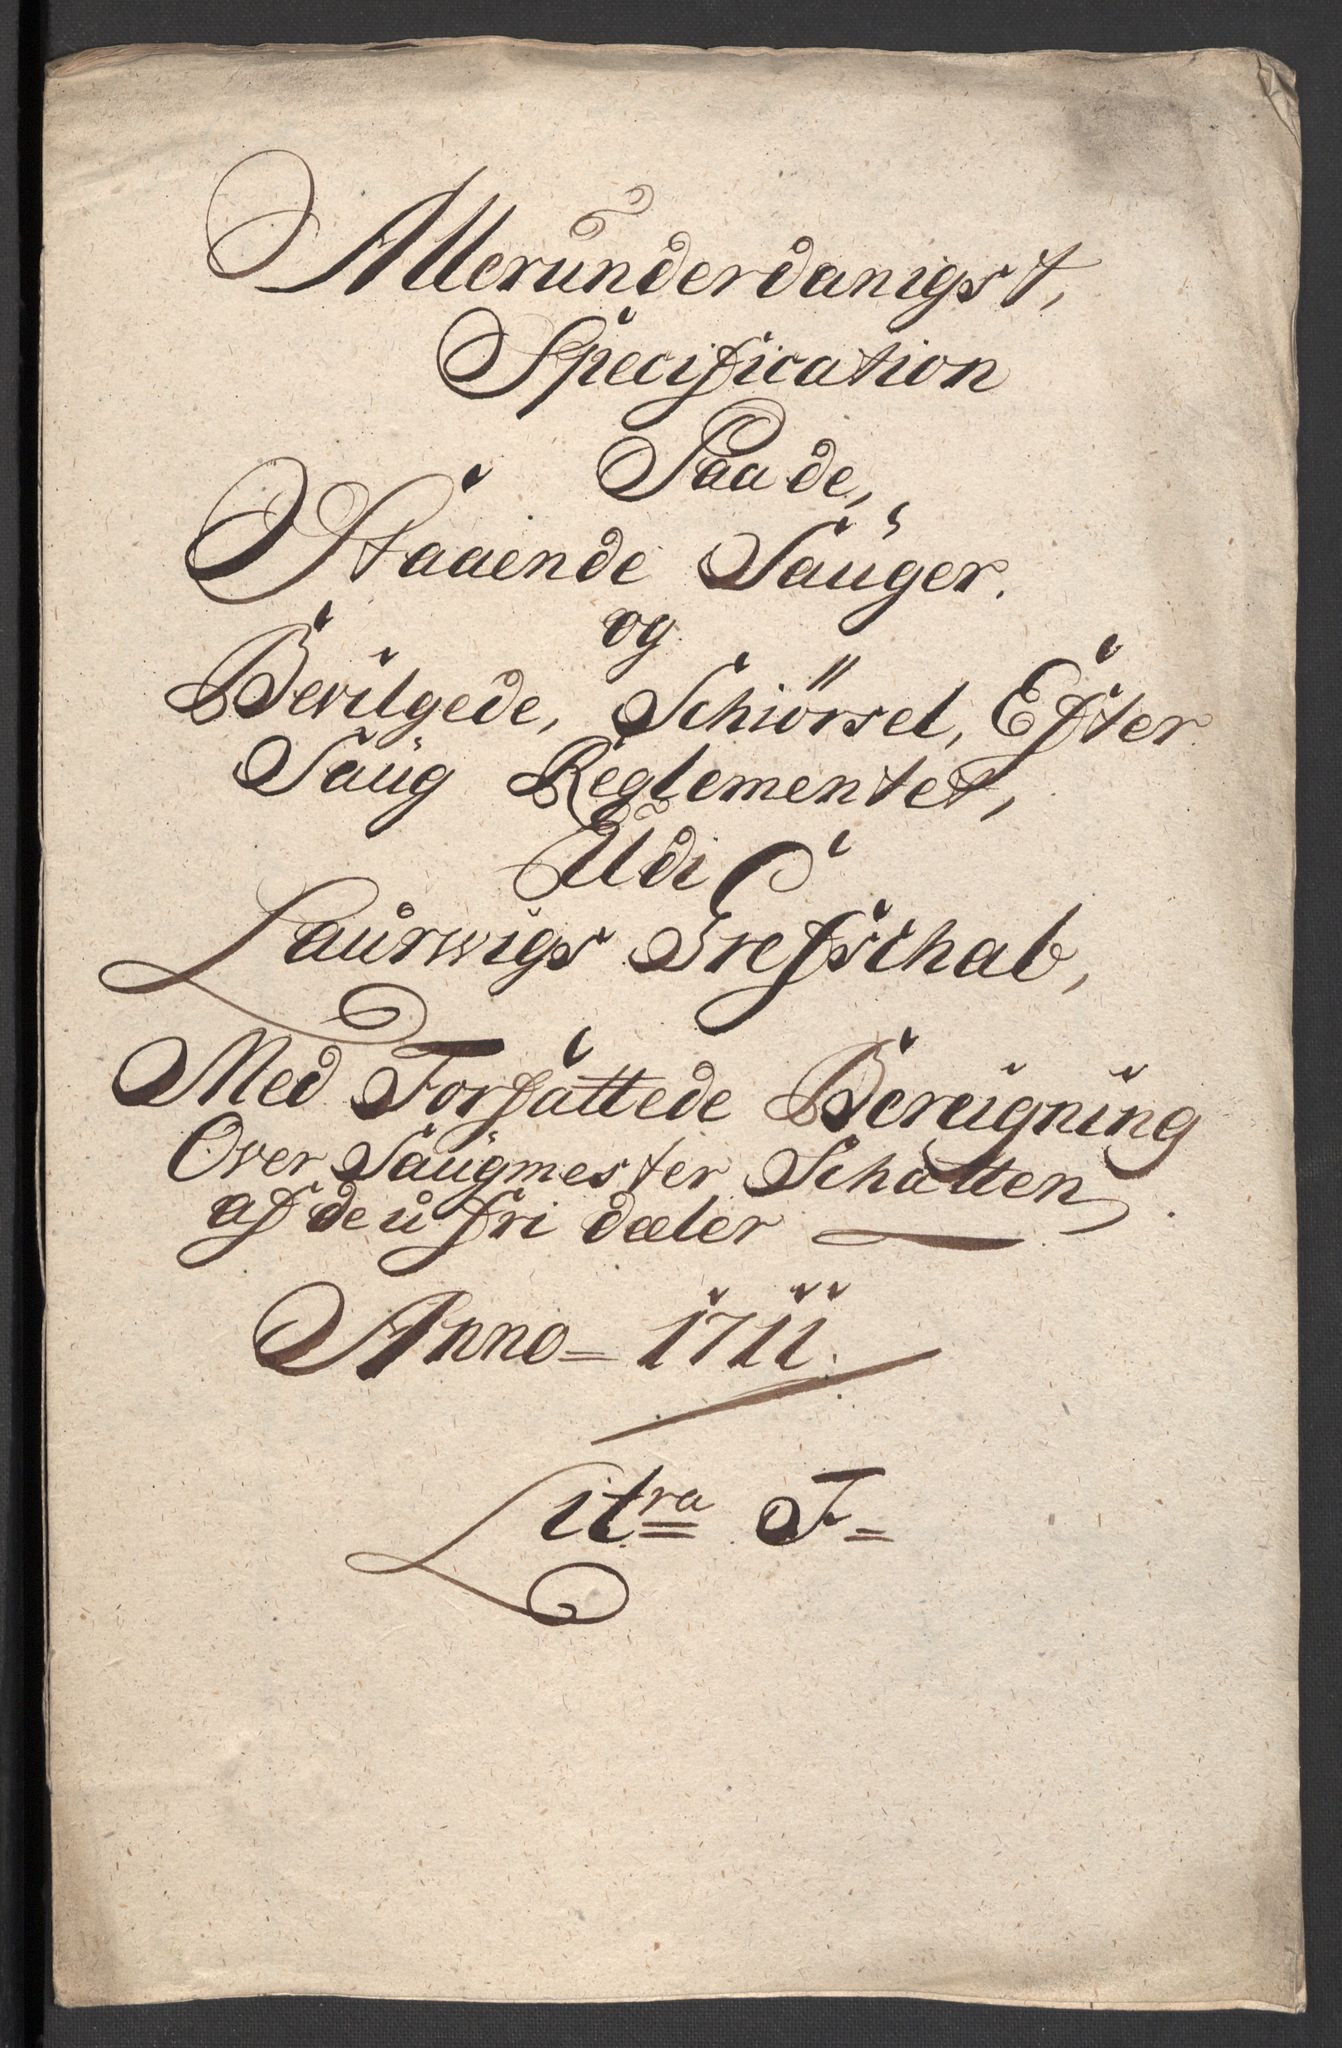 Allerunderdanigst,
Specification
Paa de,
Staaende Sauger.
og
Bevilgede, Schiörsel, Efter
Saug Reglementet,
Udi
Laurwigs Grefschab,
Med Forfattede Bereigning
Over Saugmester Schatten
af de ufri dæler
Anno = 1711.
Litra F =